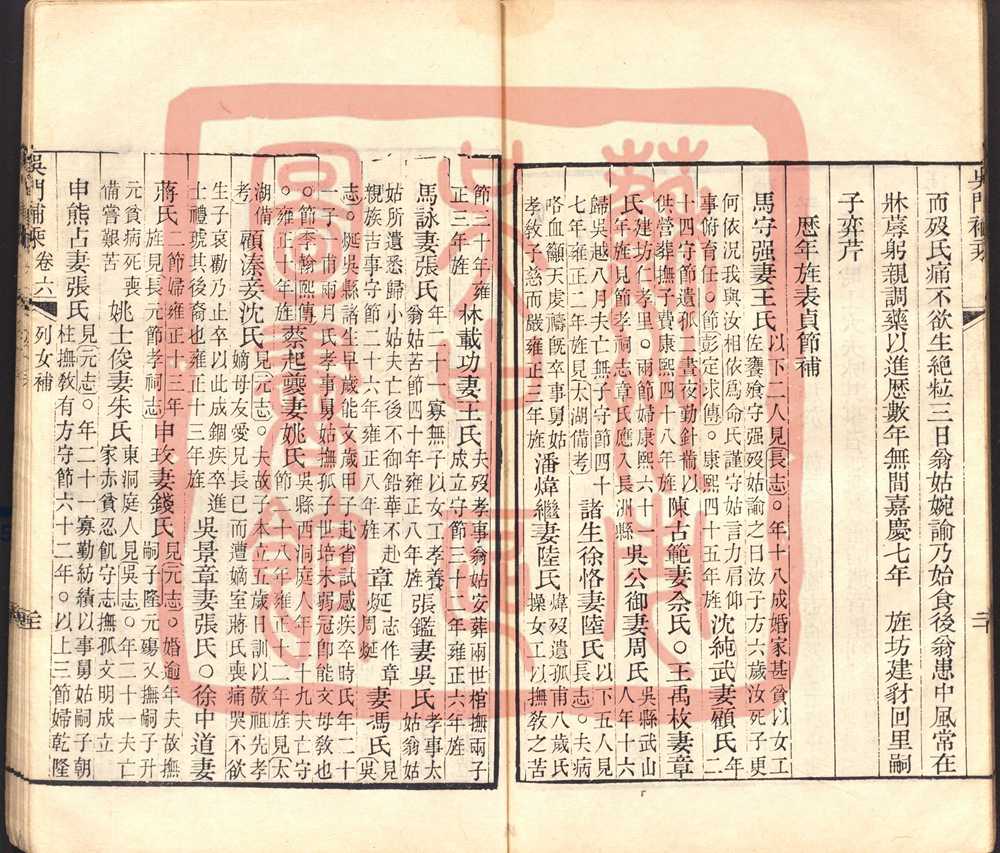 而歿氏痛不欲生絕粒三日翁姑婉諭乃始食後翁患中風常在
牀蓐躬親調藥以進歷數年無間嘉慶七年 旌坊建豸回里嗣
子弈芹
歷年旌表貞節補
馬守强妻王氏 以下二人見長志○年十八成婚家甚貧以女工 佐饔飧守强歿姑諭之曰汝子方六歲汝死子更
何依況我與汝相依爲命氏謹守姑言力肩仰 事俯育任○節彭定求傳○康熙四十五年旌 沈純武妻顧氏 年 二
十四守節遺孤二晝夜勤針黹以 供營葬撫子費康熙四十八年旌 陳古範妻佘氏○王禹枚妻章
氏 建坊仁孝里○兩節婦康熙六十 年旌見節孝祠志章氏應入長洲縣 吳公御妻周氏 吳縣武山 人年十六
歸吳越八月夫亡無子守節四十 七年雍正二年旌見太湖備考 諸生徐恪妻陸氏 以下五人見 長志○夫病
咯血籲天虔禱旣卒事舅姑 孝敎子慈而嚴雍正三年旌 潘煒繼妻陸氏 煒歿遺孤甫八歲氏 操女工以撫敎之苦
節三十年雍 正三年旌 林載功妻王氏 夫歿孝事翁姑安葬兩世棺撫兩子 成立守節三十二年雍正六年旌
馬詠妻張氏 年二十一寡無子以女工孝養 翁姑苦節雍正八年旌 張鑑妻吳氏 孝事太 姑翁
姑所遺悉歸小姑夫亡後不御鉛華不赴 親族吉事守節二十六年雍正八年旌 章埏 志作章 周埏 妻馮氏 見 吳
志○埏吳縣諸生早歲能文歲甲子赴省試感疾卒時氏年二十 一子甫兩月氏孝事舅姑撫孤子世培未弱冠卽能文母敎也
○節李翰熙傳 ○雍正十年旌 蔡起䨇妻姚氏 吳縣西洞庭人年二十九夫亡守 節二十八年雍正十二年旌見太
湖備 考 顧溱妾沈氏 見元志○夫故子本立五歲日訓以敬祖先孝 嫡母友愛兄長已而遭嫡室蔣氏喪痛哭不欲
生子哀勸乃止卒以此成錮疾卒進 士禮琥其後裔也雍正十三年旌 吳景章妻張氏○徐中道妻
蔣氏 二節婦雍正十三年 旌見長元節孝祠志 申玫妻錢氏 見元志○婚逾年夫故撫 嗣子隆元殤又撫嗣子升
元貧病死喪 備嘗艱苦 姚士俊妻朱氏 東洞庭人見吳志○年二十一夫亡 家赤貧忍飢守志撫孤文明成立
申熊占妻張氏 見元志○年二十一寡勤紡績以事舅姑嗣子朝 柱撫敎有方守節六十二年○以上三節婦乾隆
吳門補乘 卷六 列女補